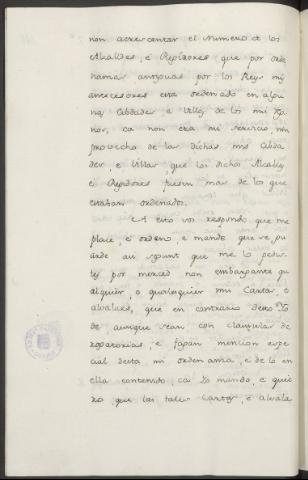 non acrescentar el numero de los
Alcaldes, e Regidores que por orde
namas antiguas por los Reys mis
antecesores esta ordenado en algu
nas Cibdades, e Villas de los mis Rg
nos, ca non era mi servicio, nin
provecho de las dichas mis Cibda
des, e Villas, que los dichos Alcaldes
e Regidores fuesen mas de los que
estaban ordenados.
A esto vos respondo que me
place, e ordeno, e mando que se gu
arde asi segunt que me lo pedis
tes por merced non embargante qu
alquier, o qualesquier mis Cartas, o
alvalaes, que en contrario desto Yo
de, aunque sean con clausulas de
rogatorias, e fagan mencion espe
cial desta mi ordenanza, e de lo en
ella contenido, ca Yo mando, e quie
ro que las tales Cartas, e alvala